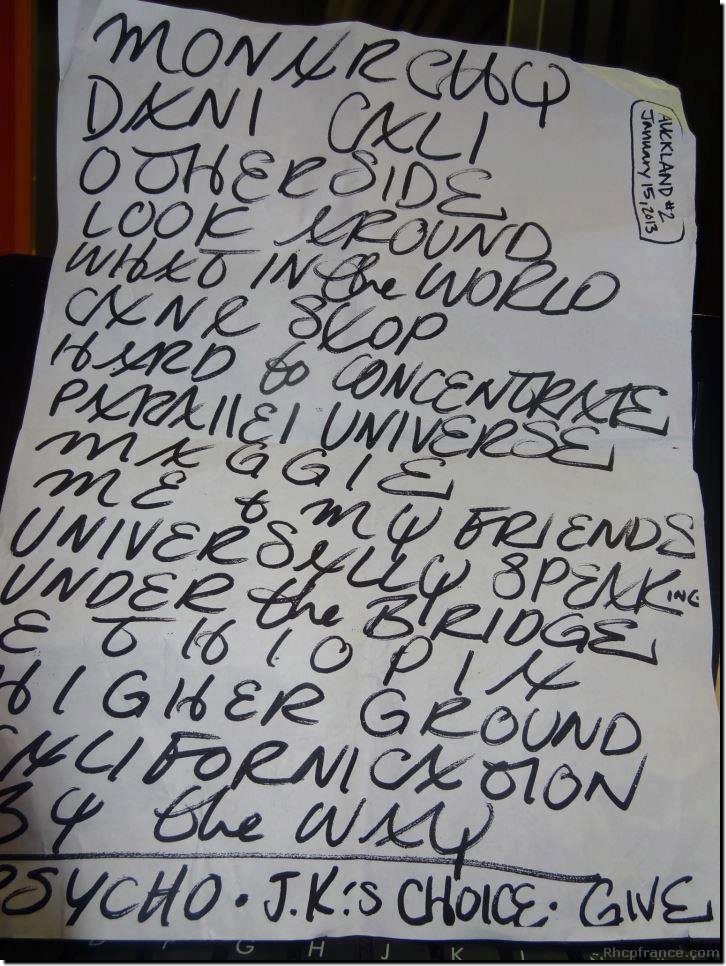 MONARCHY
DANI CALI
OTHERSIDE
LOOK AROUND
WHAT IN the WORLD
CANT STOP
HARD to CONCENTRATE
PARAllEl UNIVERSE
MAGGIE
ME & MY FRIENDS
UNIVERSALLY SPEAKING
UNDER the BRIDGE
ETHIOPIA
HIGHER GROUND
CALIFORNICATION
BY the WAY
PSYCHO · J.K.'s CHOICE · GIVE
AUCKLAND #2
January 15, 2013
F G H J K L
Rhcpfrance.com